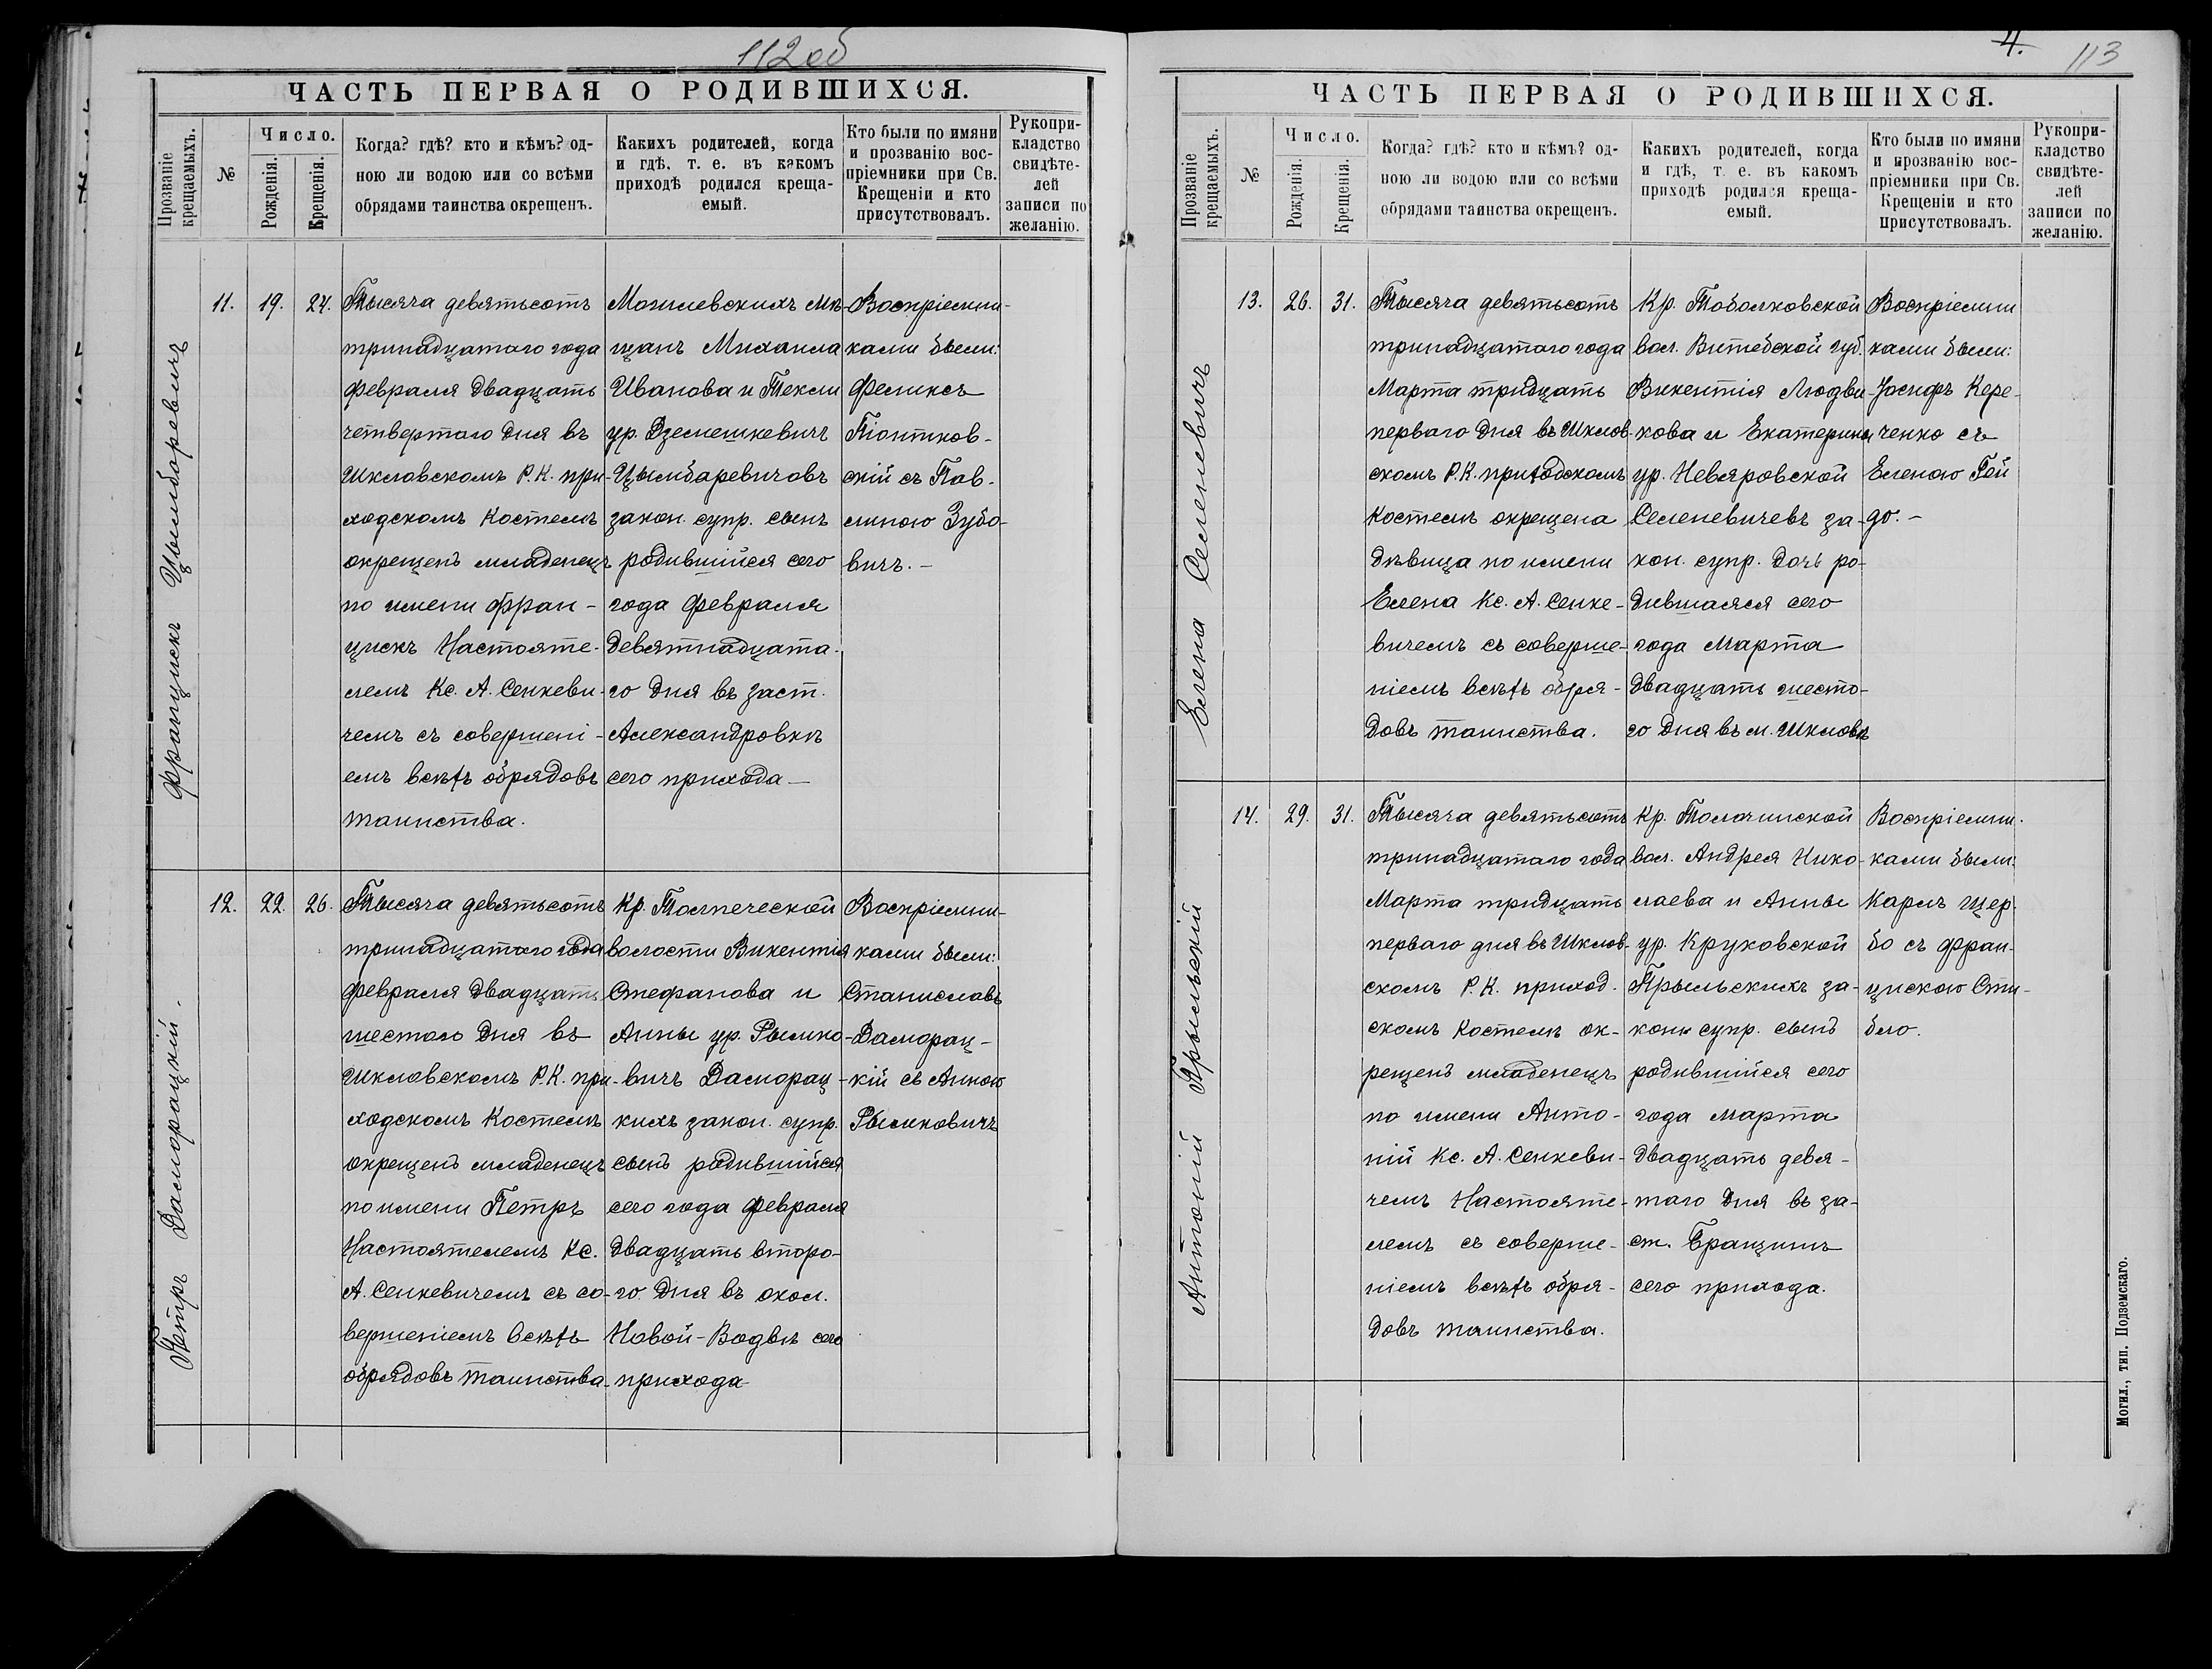 112 об
ЧАСТЬ ПЕРВАЯ О РОДИВШИХСЯ.
Прозваніе крещаемыхъ.
№
Число.
Рожденія.
Крещенія.
Когда? гдѣ? кто и кѣмъ? од-
ною ли водою или со всѣми
обрядами таинства окрещенъ.
Какихъ родителей, когда
и гдѣ, т. е. въ какомъ
приходѣ родился креща-
емый.
Кто были по имяни
и прозванію вос-
пріемники при Св.
Крещеніи и кто
присутствовалъ.
Рукопри-
кладство
свидѣте-
лей
записи по
желанію.
Францискъ Цымборевичъ
11.
19.
24.
Тысяча девятьсотъ
тринадцатаго года
февраля двадцать
четвертаго дня въ
Шкловскомъ Р.К. при-
ходскомъ костелѣ
окрещенъ младенецъ
по имени Фран-
цискъ Настояте-
лемъ Кс. А. Сенкеви-
чемъ съ совершені-
емъ всѣхъ обрядовъ
таинства.
Могилевскихъ мѣ-
щанъ Михаила
Иванова и Текли
ур. Дземешкевичъ
Цымбаревичовъ
закон. супр. сынъ
родившійся сего
года февраля
девятнадцата-
го дня въ заст.
Александровкѣ
сего прихода—
Воспріемни-
ками были:
Феликсъ
Піонтков-
скій съ Пав-
линою Зубо-
вичъ.—
Петръ Даморацкій.
12.
22.
26.
Тысяча девятьсотъ
тринадцатаго года
февраля двадцать
шестого дня въ
Шкловскомъ Р.К. при-
ходскомъ костелѣ
окрещенъ младенецъ
по имени Петръ
Настоятелемъ Кс.
А. Сенкевичемъ съ со-
вершеніемъ всѣхъ
обрядовъ таинства.
Кр. Толпеческой
волости Викентія
Стефанова и
Анны ур. Рымко-
вичъ Даморац-
кихъ закон. супр.
сынъ родившійся
сего года февраля
двадцать второ-
го дня въ окол.
Новой-Водвѣ сего
прихода
Воспріемни-
ками были:
Станиславъ
Даморац-
кій съ Анною
Рымковичъ
4.
113
ЧАСТЬ ПЕРВАЯ О РОДИВШИХСЯ.
Прозваніе крещаемыхъ.
№
Число.
Рожденія.
Крещенія.
Когда? гдѣ? кто и кѣмъ? од-
ною ли водою или со всѣми
обрядами таинства окрещенъ.
Какихъ родителей, когда
и гдѣ, т. е. въ какомъ
приходѣ родился креща-
емый.
Кто были по имяни
и прозванію вос-
пріемники при Св.
Крещеніи и кто
присутствовалъ.
Рукопри-
кладство
свидѣте-
лей
записи по
желанію.
Елена Селеневичъ
13.
26.
31.
Тысяча девятьсотъ
тринадцатаго года
Марта тридцать
перваго дня въ Шклов-
скомъ Р.К. приходскомъ
костелѣ окрещена
дѣвица по имени
Елена Кс. А. Сенке-
вичемъ съ соверше-
ніемъ всѣхъ обря-
довъ таинства.
Кр. Тоболковской
вол. Витебской губ.
Викентія Людви-
кова и Екатерины
ур. Невяровской
Селеневичевъ за-
кон. супр. дочь ро-
дившаяся сего
года Марта
двадцать шесто-
го дня въ м. Шкловѣ
Воспріемни
ками были:
Іосифъ Кере-
ченко съ
Еленою Гей
до.—
Антоній Прыльскій
14.
29.
31.
Тысяча девятьсотъ
тринадцатаго года
Марта тридцать
перваго дня въ Шклов-
скомъ Р.К. приход-
скомъ костелѣ ок-
рещенъ младенецъ
по имени Анто-
ній Кс. А. Сенкеви-
чемъ Настояте-
лемъ съ соверше-
ніемъ всѣхъ обря-
довъ таинства.
Кр. Толочинской
вол. Андрея Нико-
лаева и Анны
ур. Круковской
Прыльскихъ за-
конн супр. сынъ
родившійся сего
года Марта
двадцать девя-
таго дня въ за-
ст. Бранцинѣ
сего прихода.
Воспріемни-
ками были:
Карлъ Щер-
бо съ Фран-
цискою Сти-
бло.
Могил., тип. Подземскаго.